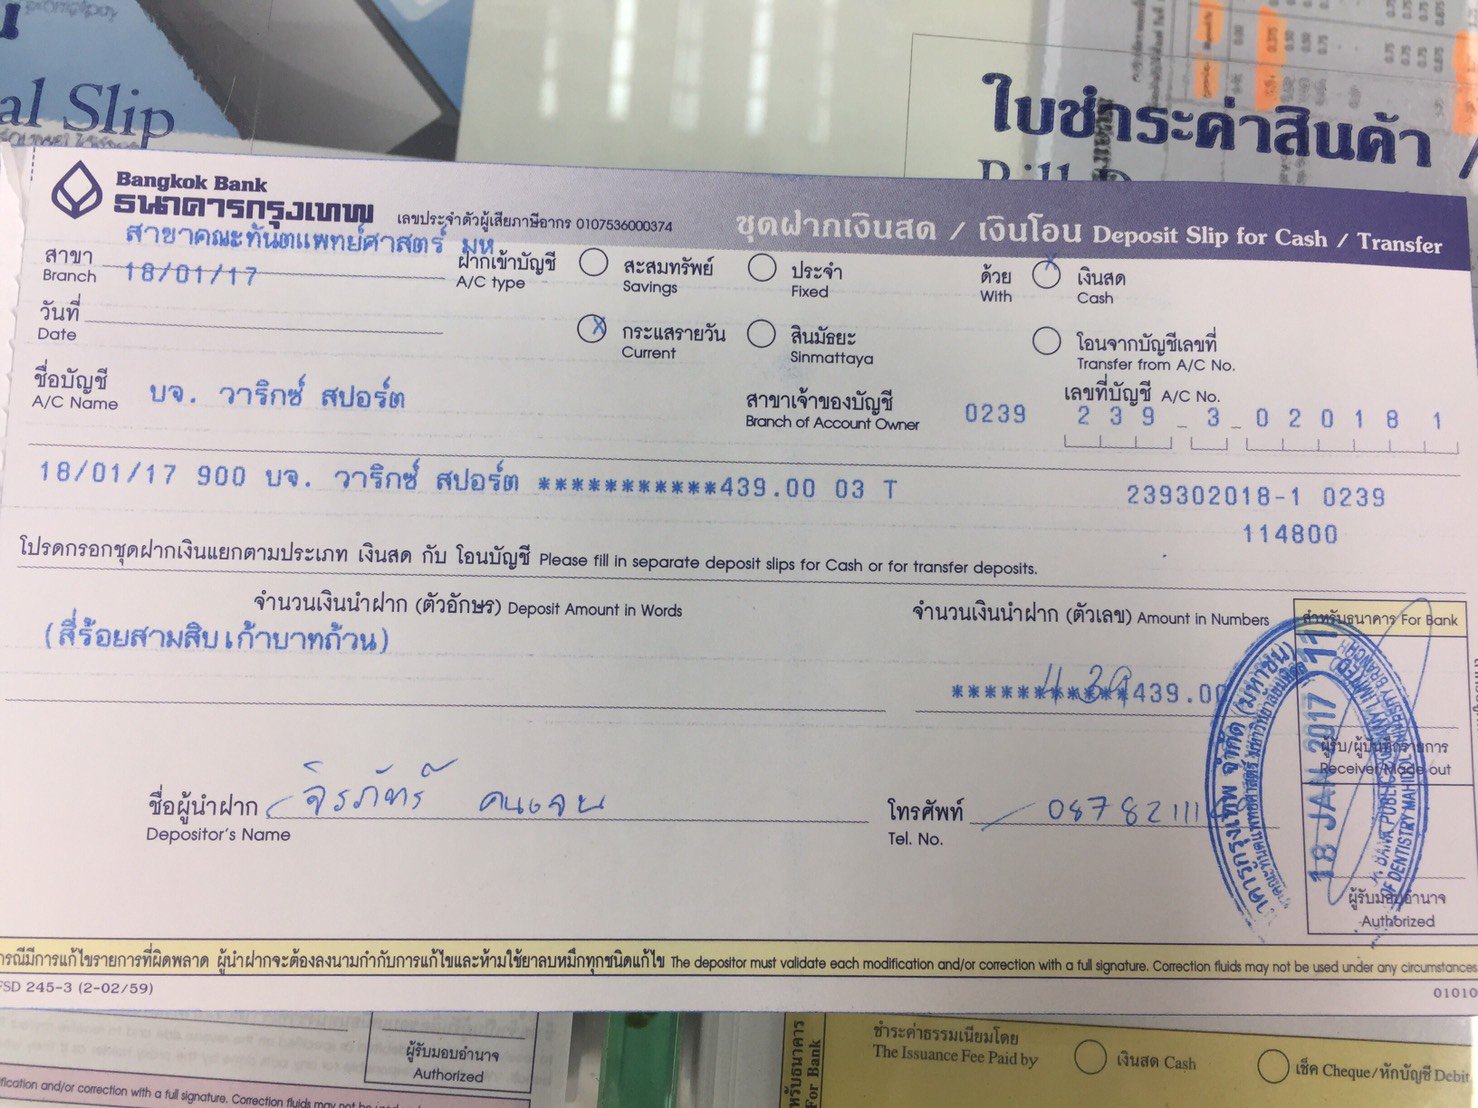 al Slip
ใบชำระค่าสินค้า /
Bangkok Bank
ธนาคารกรุงเทพ
เลขประจำตัวผู้เสียภาษีอากร 0107536000374
ชุดฝากเงินสด / เงินโอน Deposit Slip for Cash / Transfer
สาขา
Branch
สาขาคณะทันตแพทย์ศาสตร์ มห
18/01/17
ฝากเข้าบัญชี
A/C type
สะสมทรัพย์
Savings
ประจำ
Fixed
ด้วย
With
x
เงินสด
Cash
วันที่
Date
x
กระแสรายวัน
Current
สินมัธยะ
Sinmattaya
โอนจากบัญชีเลขที่
Transfer from A/C No.
ชื่อบัญชี
A/C Name
บจ. วาริกซ์ สปอร์ต
สาขาเจ้าของบัญชี
Branch of Account Owner
0239
เลขที่บัญชี A/C No.
239-3-02018 1
18/01/17 900 บจ. วาริกซ์ สปอร์ต ***********439.00 03 T
239302018-1 0239
114800
โปรดกรอกชุดฝากเงินแยกตามประเภท เงินสด กับ โอนบัญชี Please fill in separate deposit slips for Cash or for transfer deposits.
จำนวนเงินนำฝาก (ตัวอักษร) Deposit Amount in Words
จำนวนเงินนำฝาก (ตัวเลข) Amount in Numbers
สำหรับธนาคาร For Bank
(สี่ร้อยสามสิบเก้าบาทถ้วน)
439
***********439.00
11
18 JAN 2017
ผู้รับ/ผู้บันทึกรายการ
Receiver/Made out
ชื่อผู้นำฝาก
Depositor's Name
จิรภัทร์
โทรศัพท์
Tel. No.
08782111
ผู้รับมอบอำนาจ
Authorized
กรณีมีการแก้ไขรายการที่ผิดพลาด ผู้นำฝากจะต้องลงนามกำกับการแก้ไขและห้ามใช้ยาลบหมึกทุกชนิดแก้ไข The depositor must validate each modification and/or correction with a full signature. Correction fluids may not be used under any circumstances
FSD 245-3 (2-02/59)
01010
ผู้รับมอบอำนาจ
Authorized
and/or correction with a full signature. Correction fluids may not be
หรับธนาคาร
For Bank
ชำระค่าธรรมเนียมโดย
The Issuance Fee Paid by
เงินสด Cash
เช็ค Cheque/หักบัญชี Debit